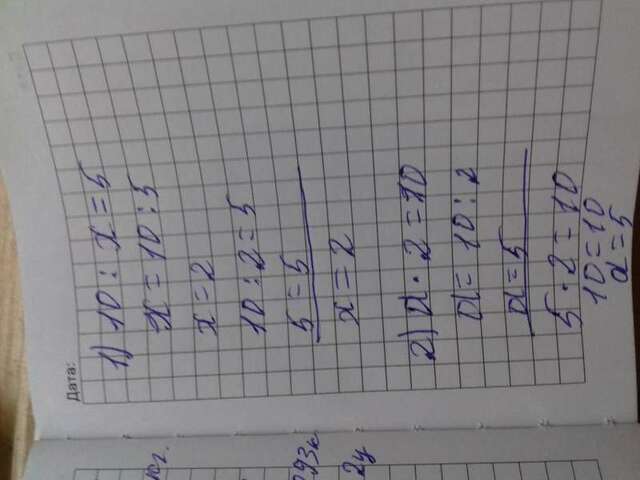 Дата:
1) 10 : x = 5
x = 10 : 5
x = 2
10 : 2 = 5
5 = 5
x = 2
2) a · 2 = 10
a = 10 : 2
a = 5
5 · 2 = 10
10 = 10
a = 5